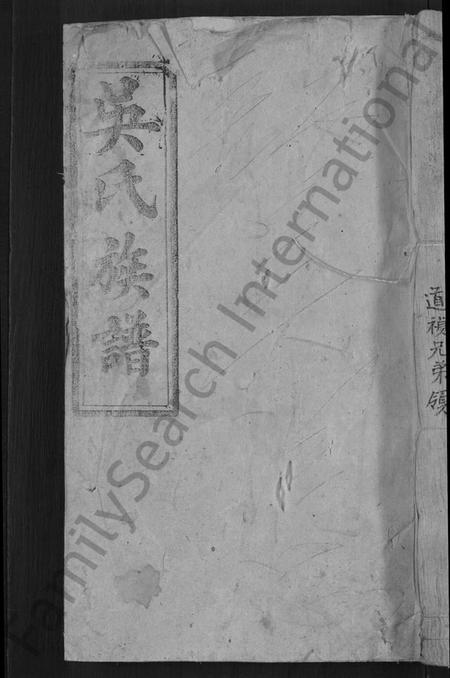 吳氏族譜
道禎兄弟領
FamilySearch International